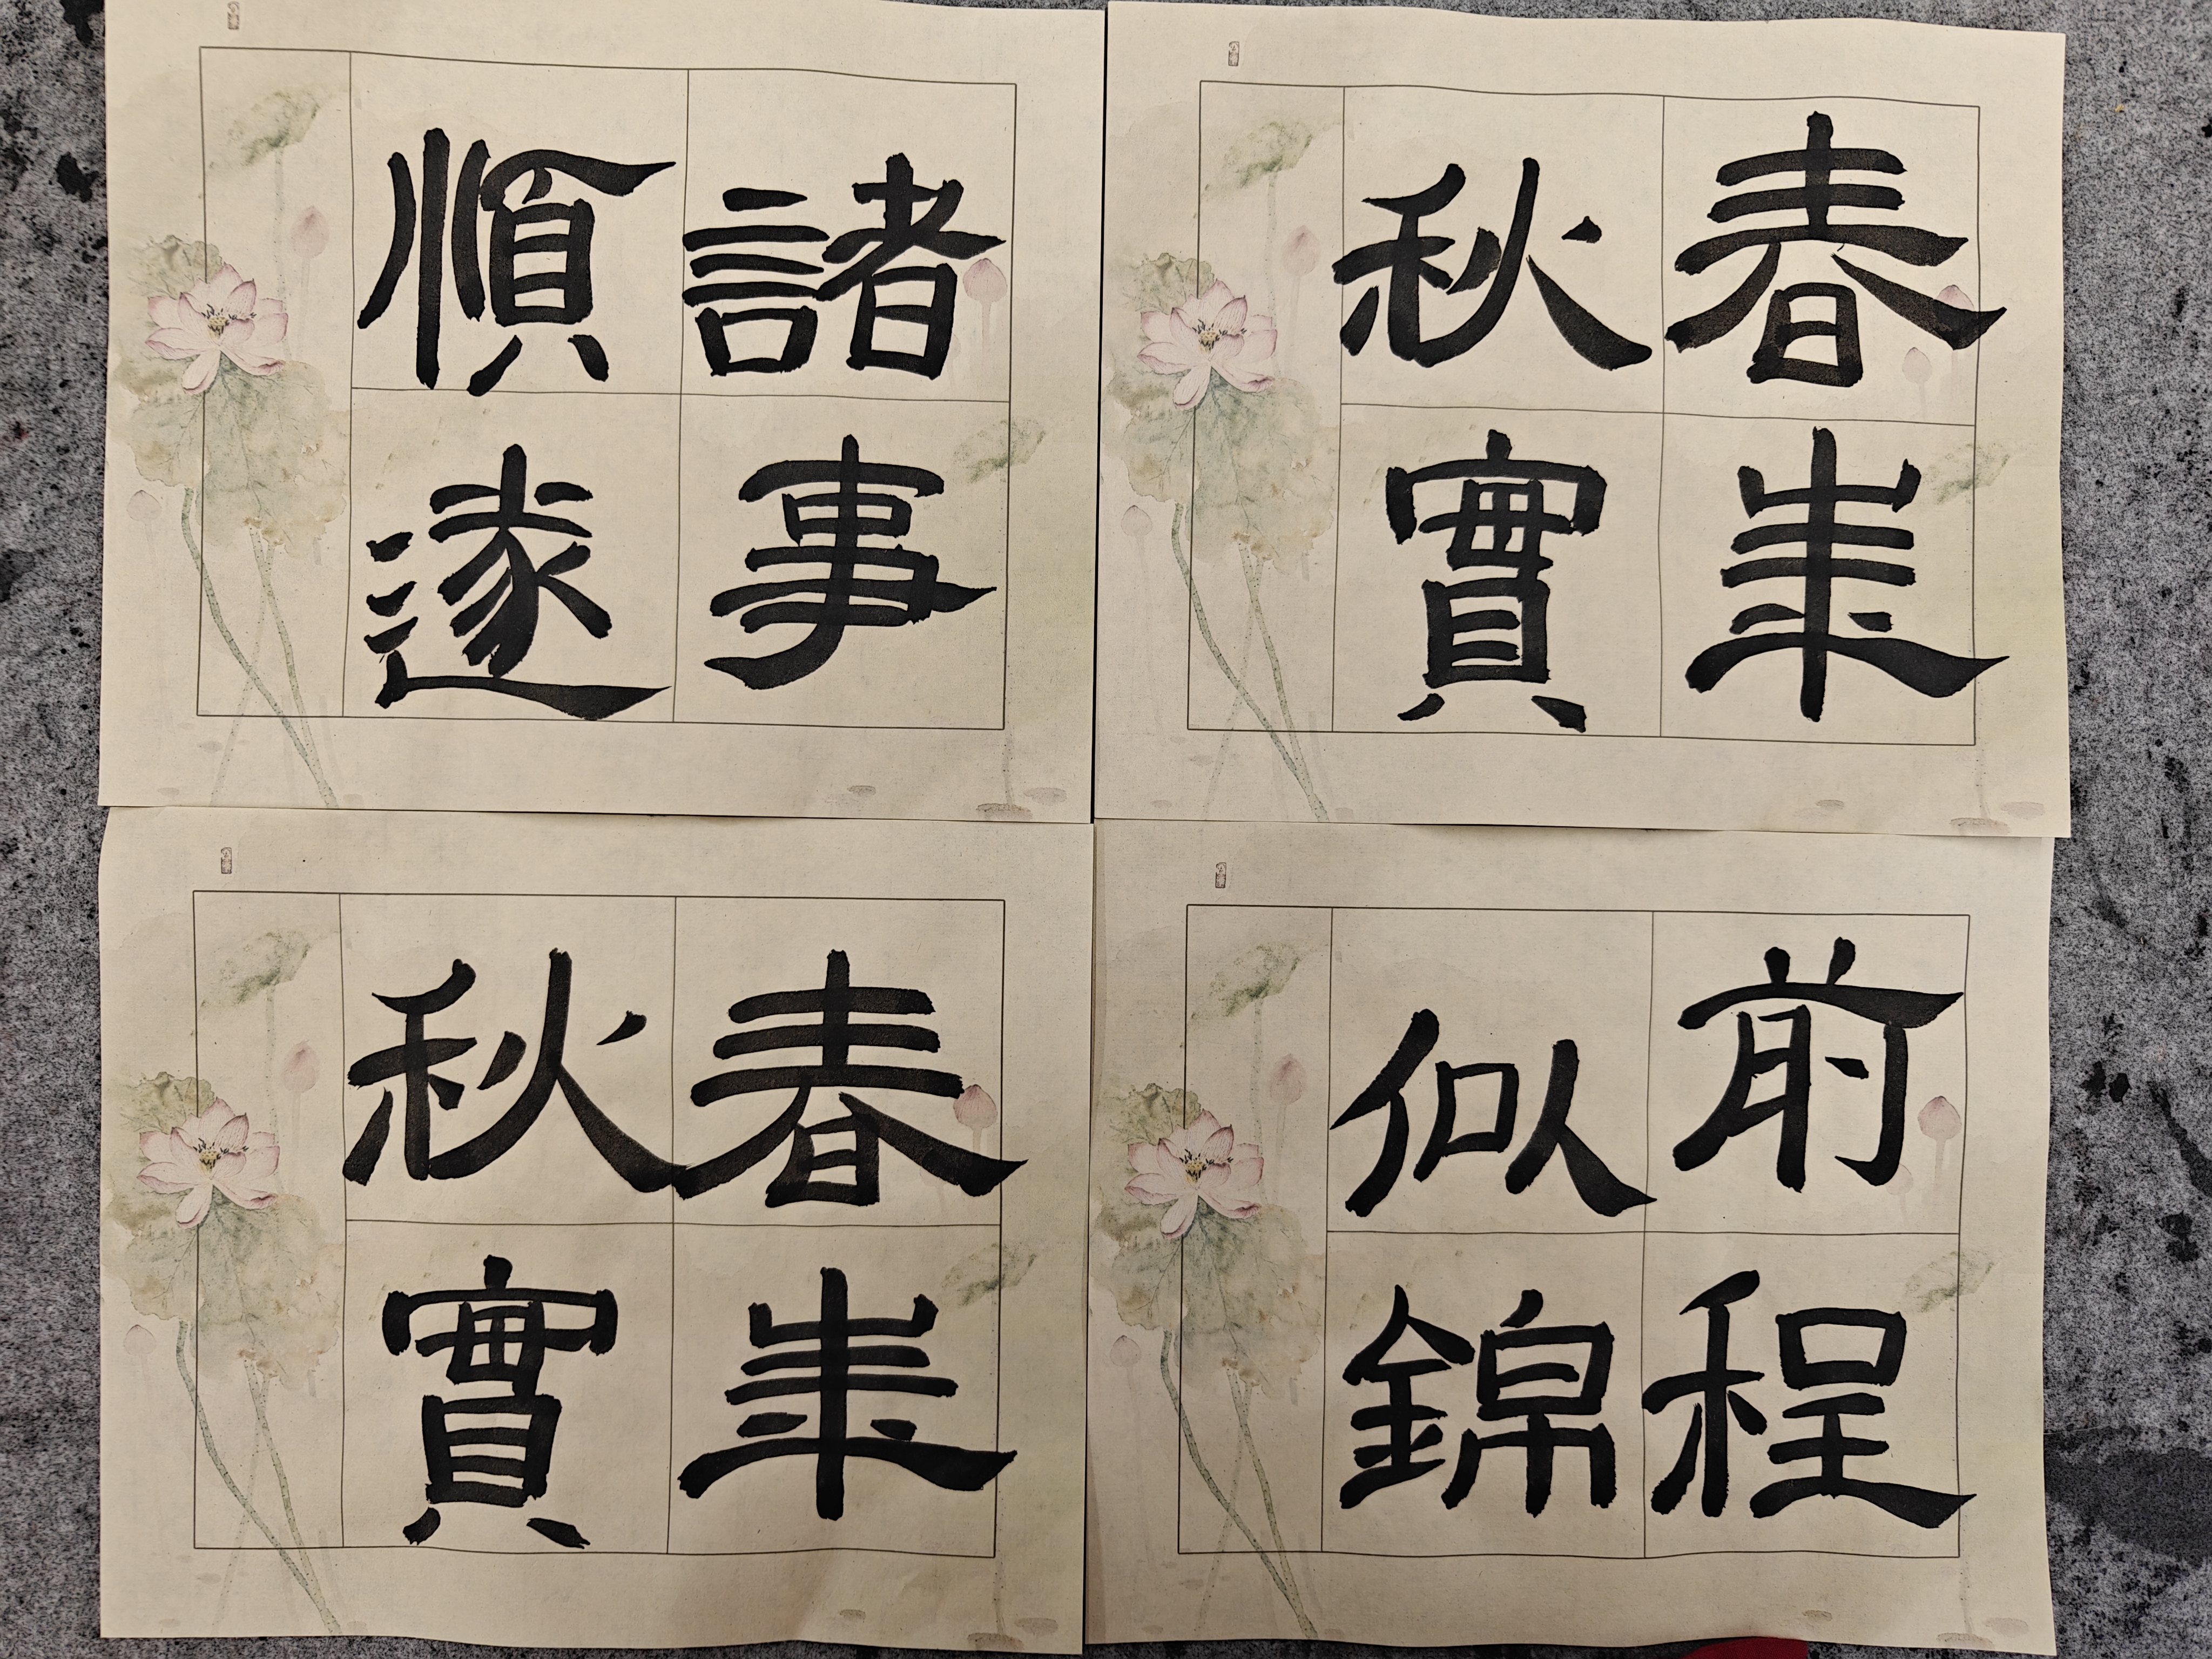 春華
秋實
諸事
順遂
前程
似錦
春華
秋實